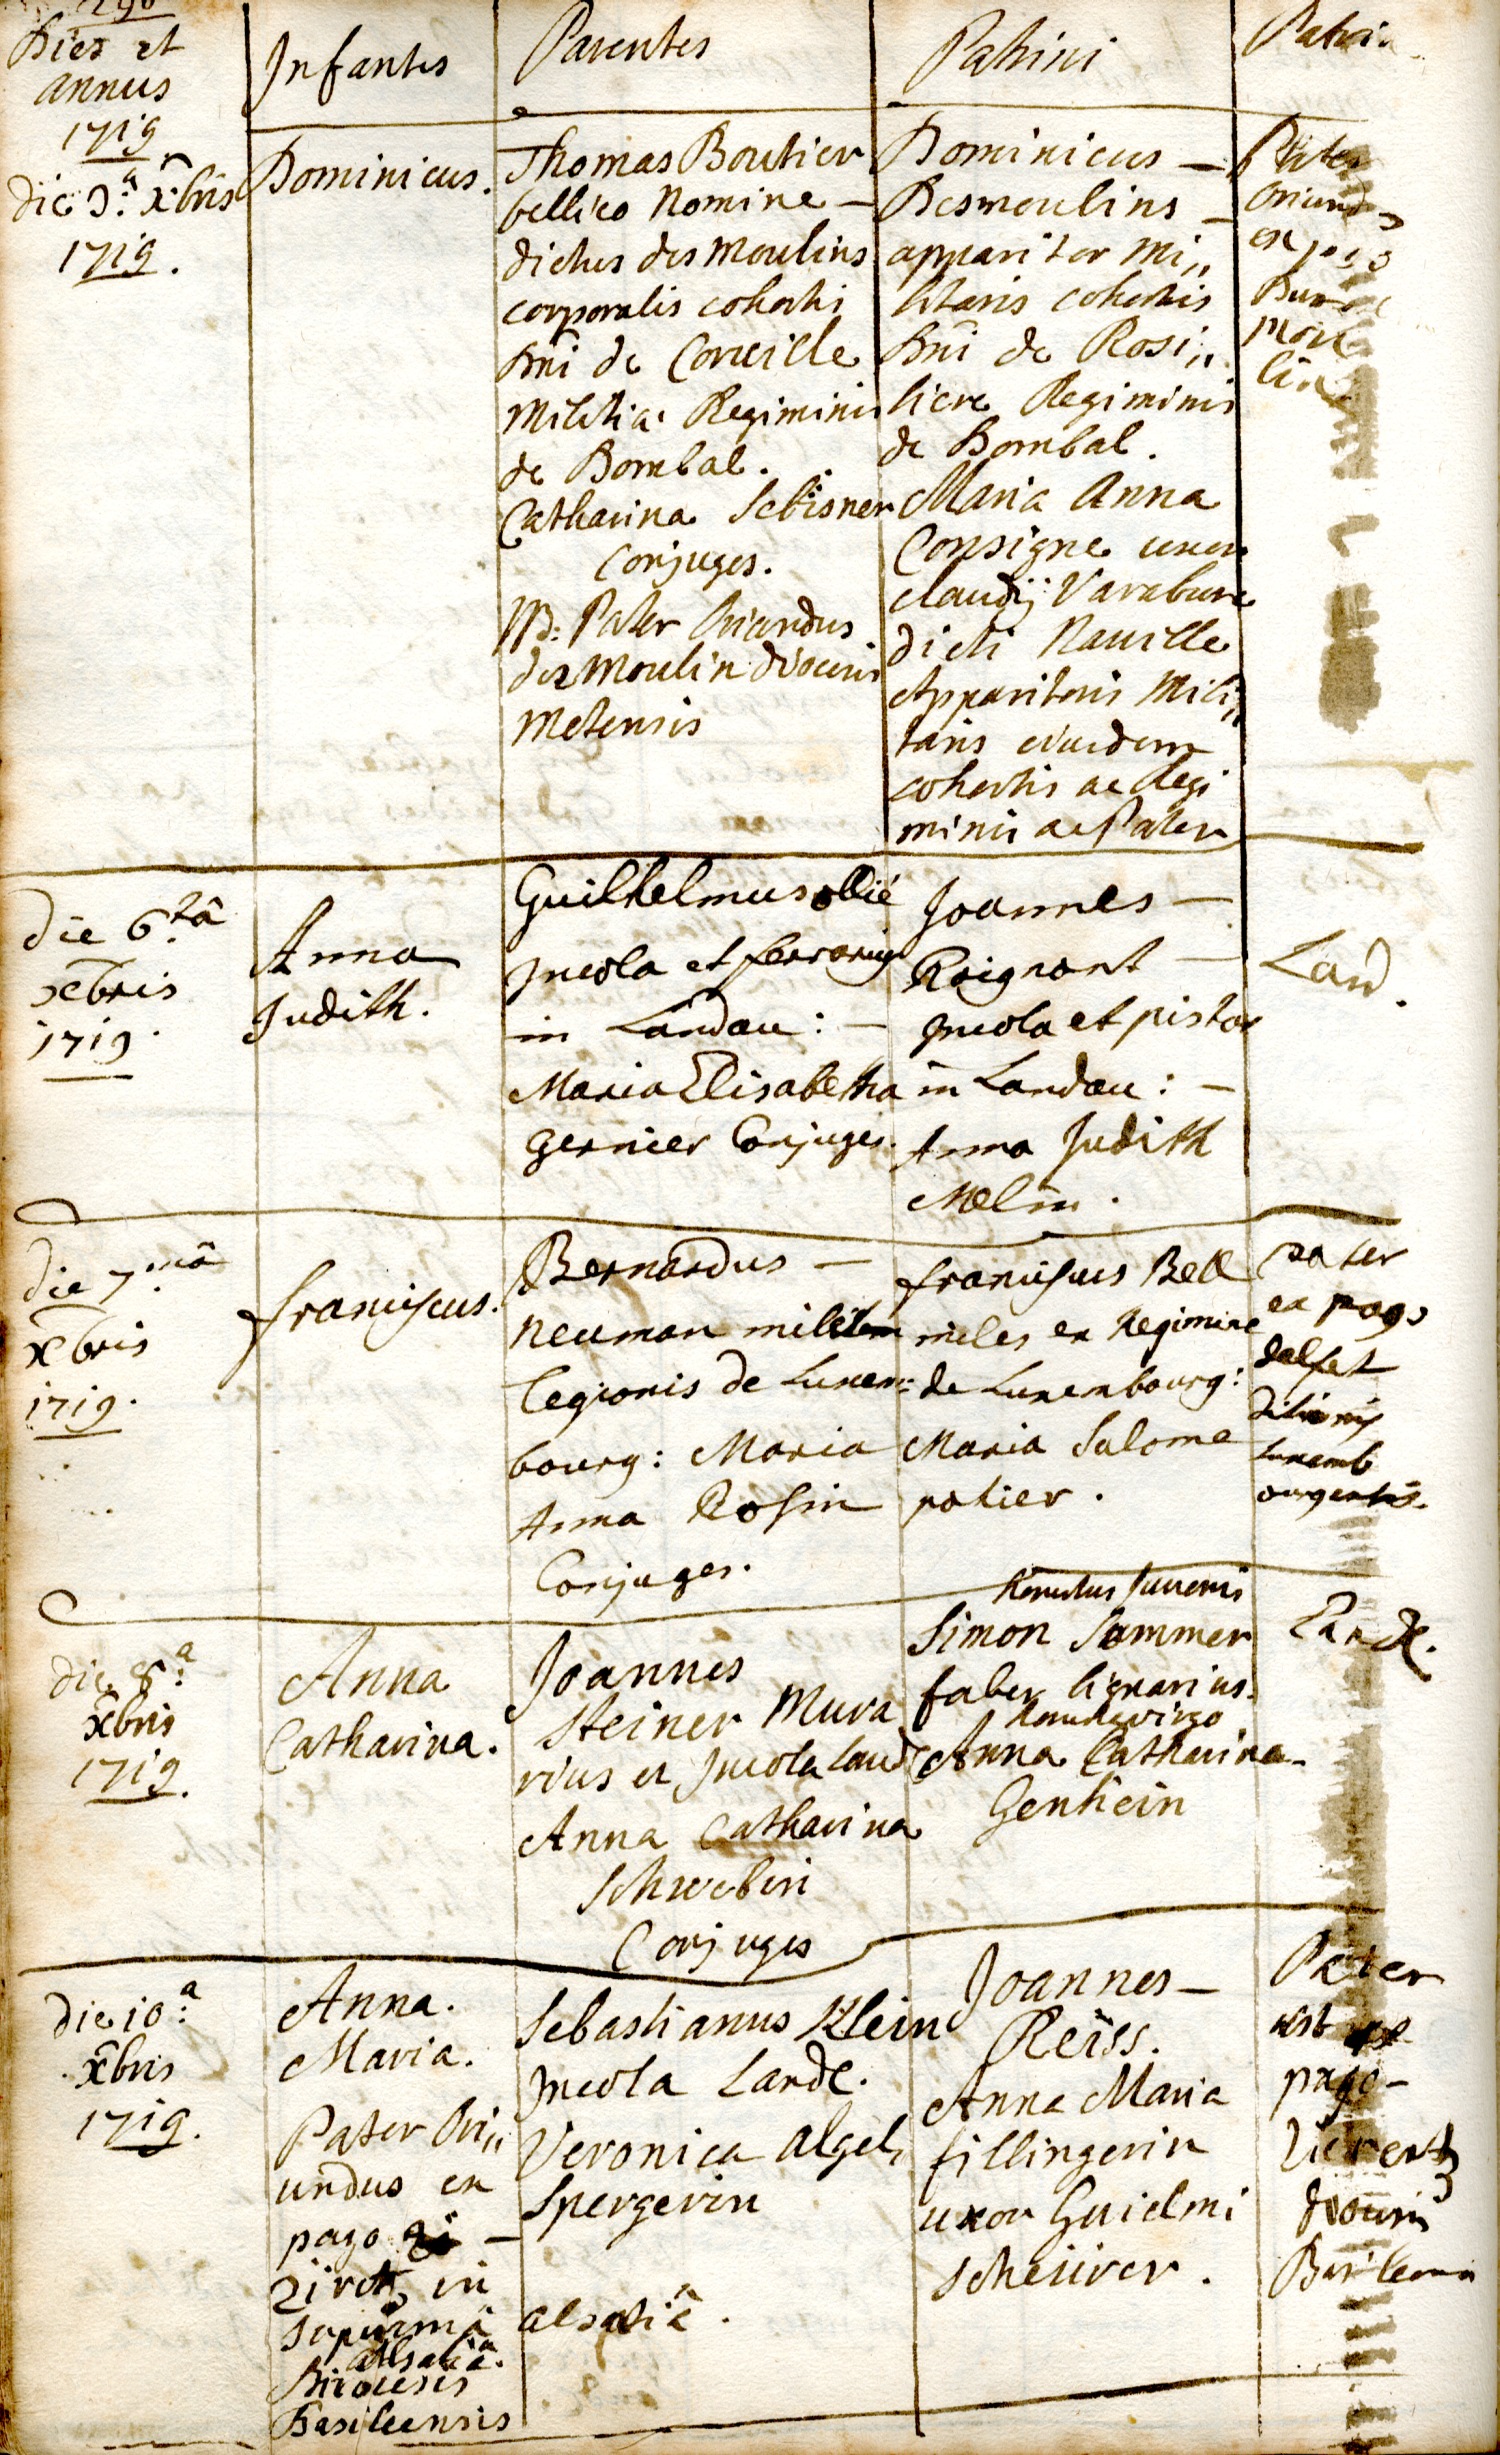 Dies et
annus
1719
Infantes
Parentes
Patrini
die 3.a xbris
1719.
Dominicus.
Thomas Boutier
bellico Nomine —
dictus des Moulins
corporalis cohortis
Dni de Corveille
Militiae Regiminis
de Bombal.
Catharina Sebisner
Conjuges.
NB: Pater Oriundus
des Moulin diocesis
Metensis
Dominicus —
Desmoulins —
apparitor Mi„
litaris cohortis
Dni de Rosi„
liere Regiminis
de Bombal.
Maria Anna
Consigne uxor
Claudij Varabure
dicti Nauille
Apparitoris Mili„
taris eiusdem
cohortis ac Regi
minis ac Pater
Pater
oriund
ex pago
die 6.ta
xbris
1719.
Anna
Judith.
Guilhelmus ollié
Incola et ferrarius
in Landau: —
Maria Elisabetha
gernier Conjuges.
Joannes —
Roignant —
Incola et pistor
in Landau: —
Anna Judith
Melin.
Land.
die 7.ma
xbris
1719.
franciscus.
Bernardus —
neuman
legionis de Luxem:
bourg: Maria
Anna Rossin
Conjuges.
franciscus Bell
miles ex Regimine
de Luxembourg:
Maria Salome
potier.
pater
ex pago
dalset
ditionis
Luxemb
die 8.a
xbris
1719.
Anna
Catharina.
Joannes
Steiner Mura
rius et Incola Land
Anna Catharina
Schwebin
Conjuges
Honestus Juvenis
Simon Sammer
faber lignarius.
virgo
Anna Catharina
Genhein
Lande.
die 10.a
xbris
1719.
Anna.
Maria.
Pater Ori„
undus ex
pago —
in
alsatiâ.
Diocesis
Basileensis
Sebastianus Klein
Incola Lande.
Veronica algel„
Spergerin
alsatiâ.
Joannes —
Reiss.
Anna Maria
fillingerin
uxor Guielmi
Scheürer.
Pater
est
pago —